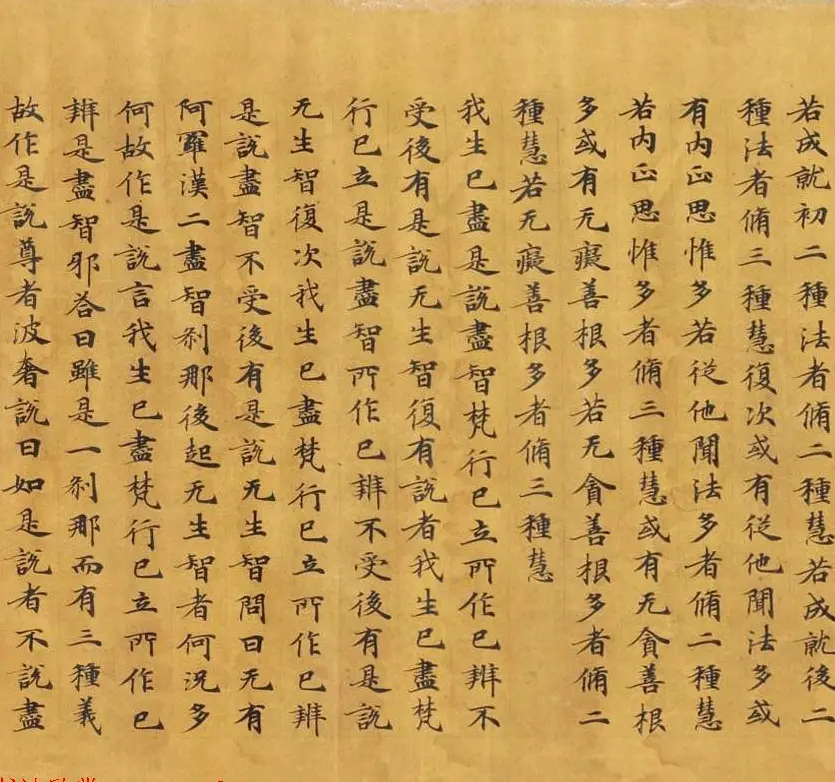 若成就初二種法者脩二種慧若成就後二
種法者脩三種慧復次或有從他聞法多或
有内正思惟多若從他聞法多者脩二種慧
若内正思惟多者脩三種慧或有无貪善根
多或有无癡善根多若无貪善根多者脩二
種慧若无癡善根多者脩三種慧
我生已盡是說盡智梵行已立所作已辨不
受後有是說无生智復有說者我生已盡梵
行已立是說盡智所作已辨不受後有是說
无生智復次我生已盡梵行已立所作已辨
是說盡智不受後有是說无生智問曰无有
阿羅漢二盡智刹那後起无生智者何況多
何故作是說言我生已盡梵行已立所作已
辨是盡智邪荅曰雖是一刹那而有三種義
故作是說尊者波奢說曰如是說者不說盡